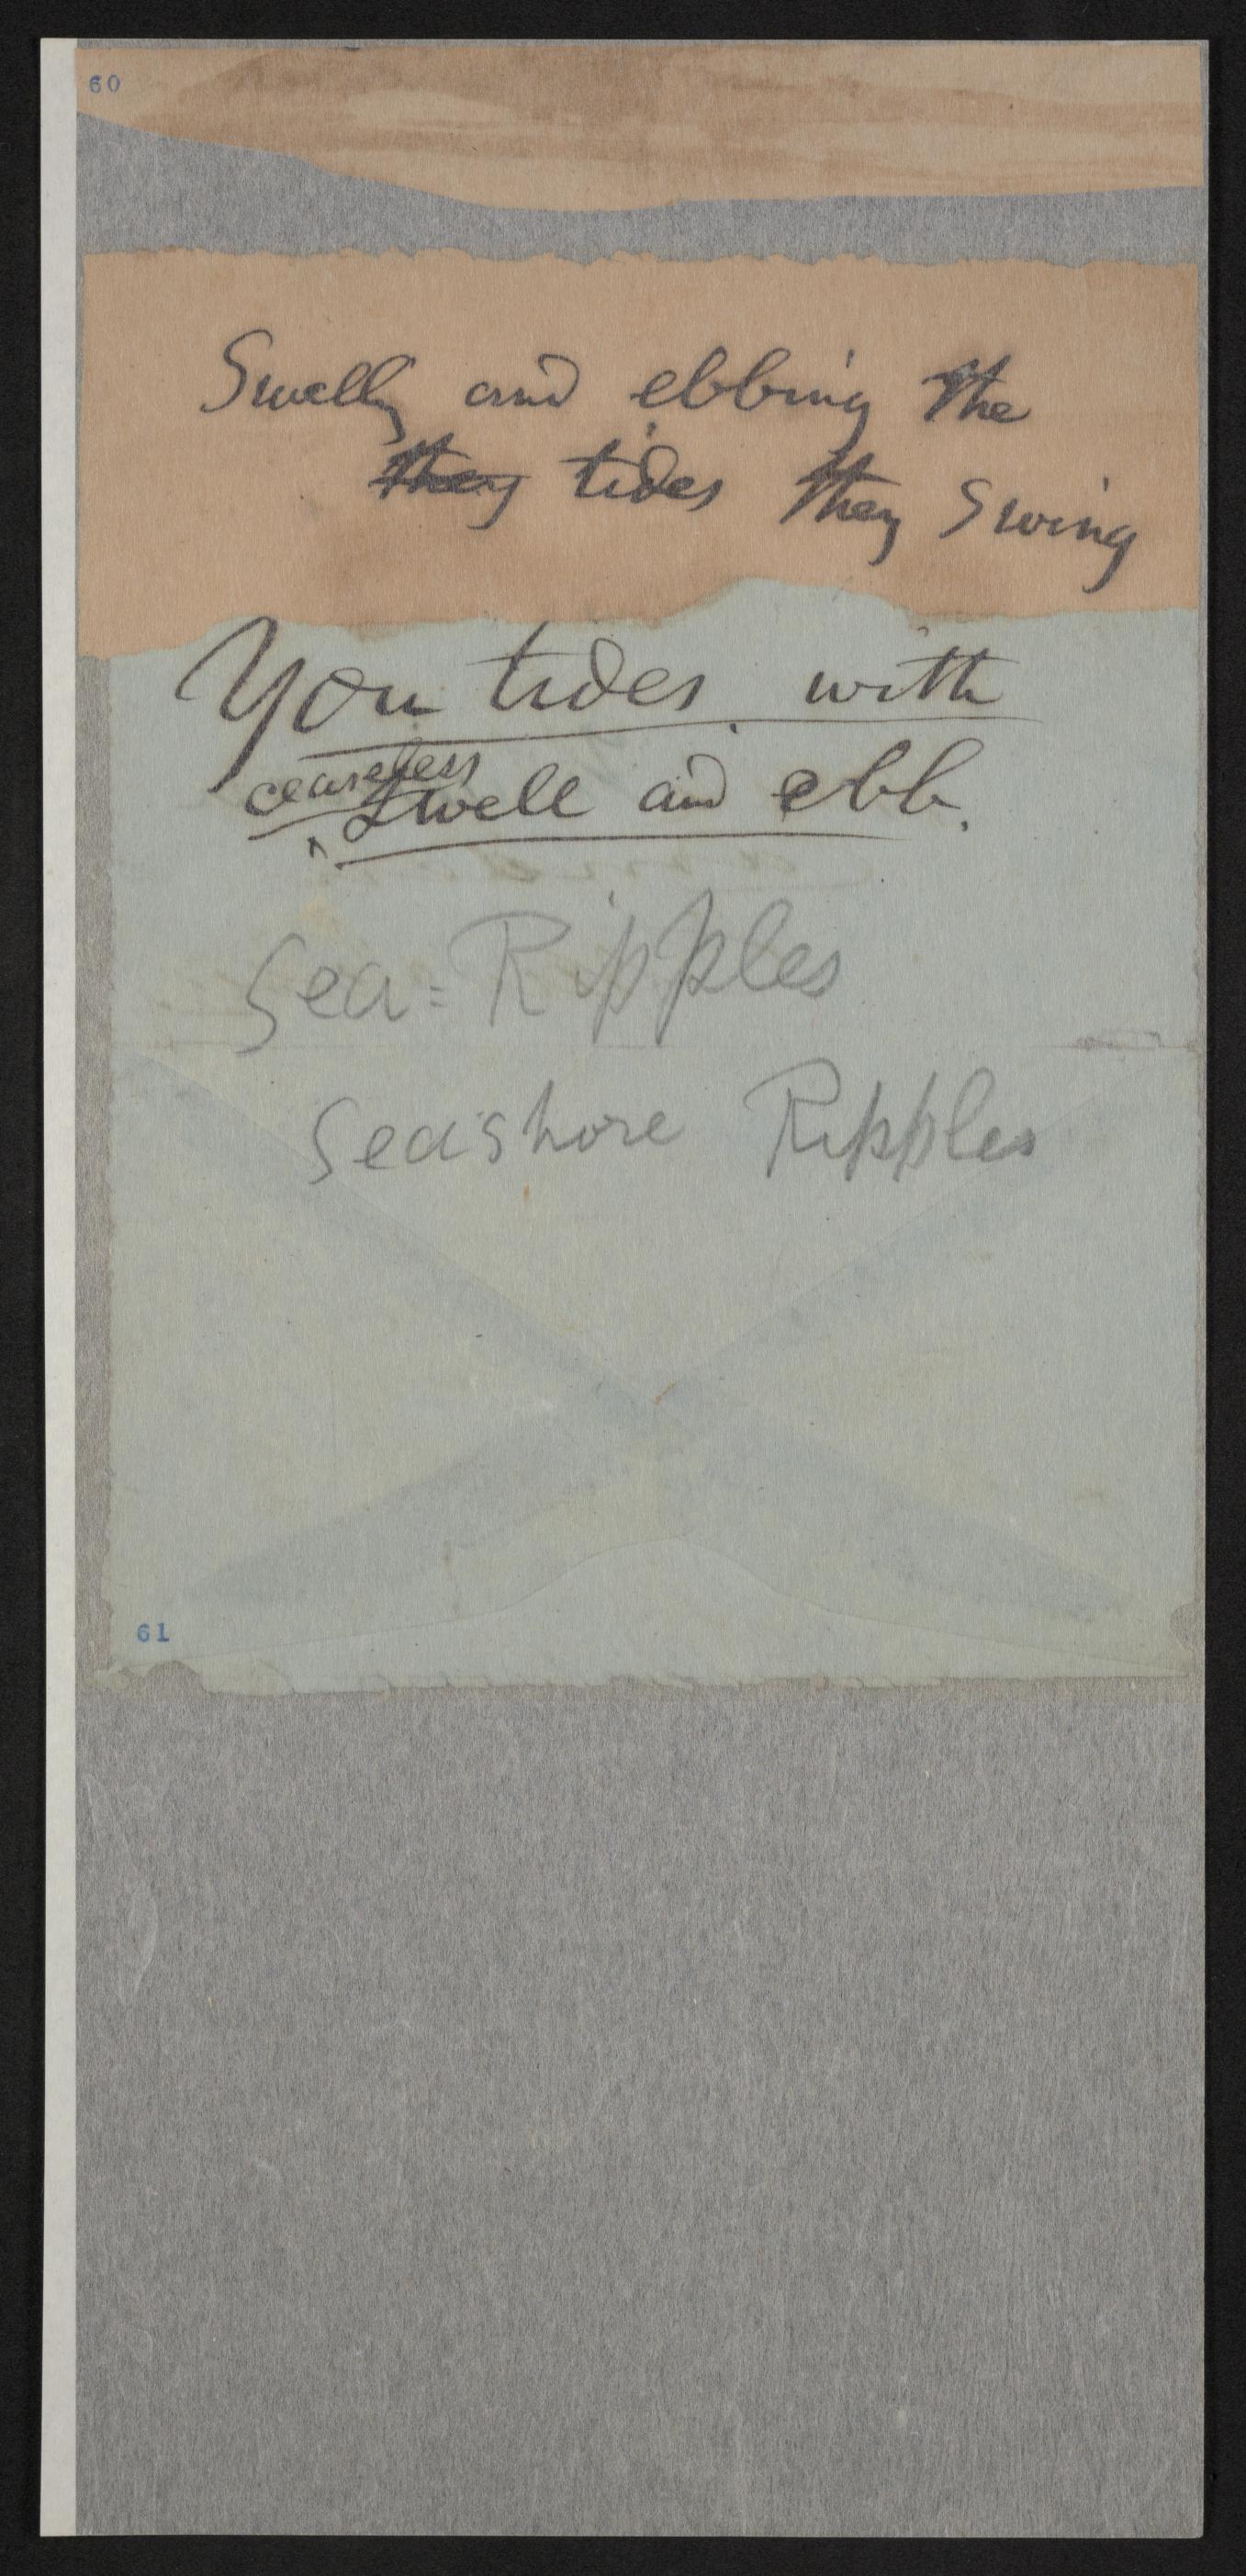 60
Swellg and ebbing the
they tides they swing
You tides with
ceaseless
swell and ebb.
Sea=Ripples
Seashore Ripples
61